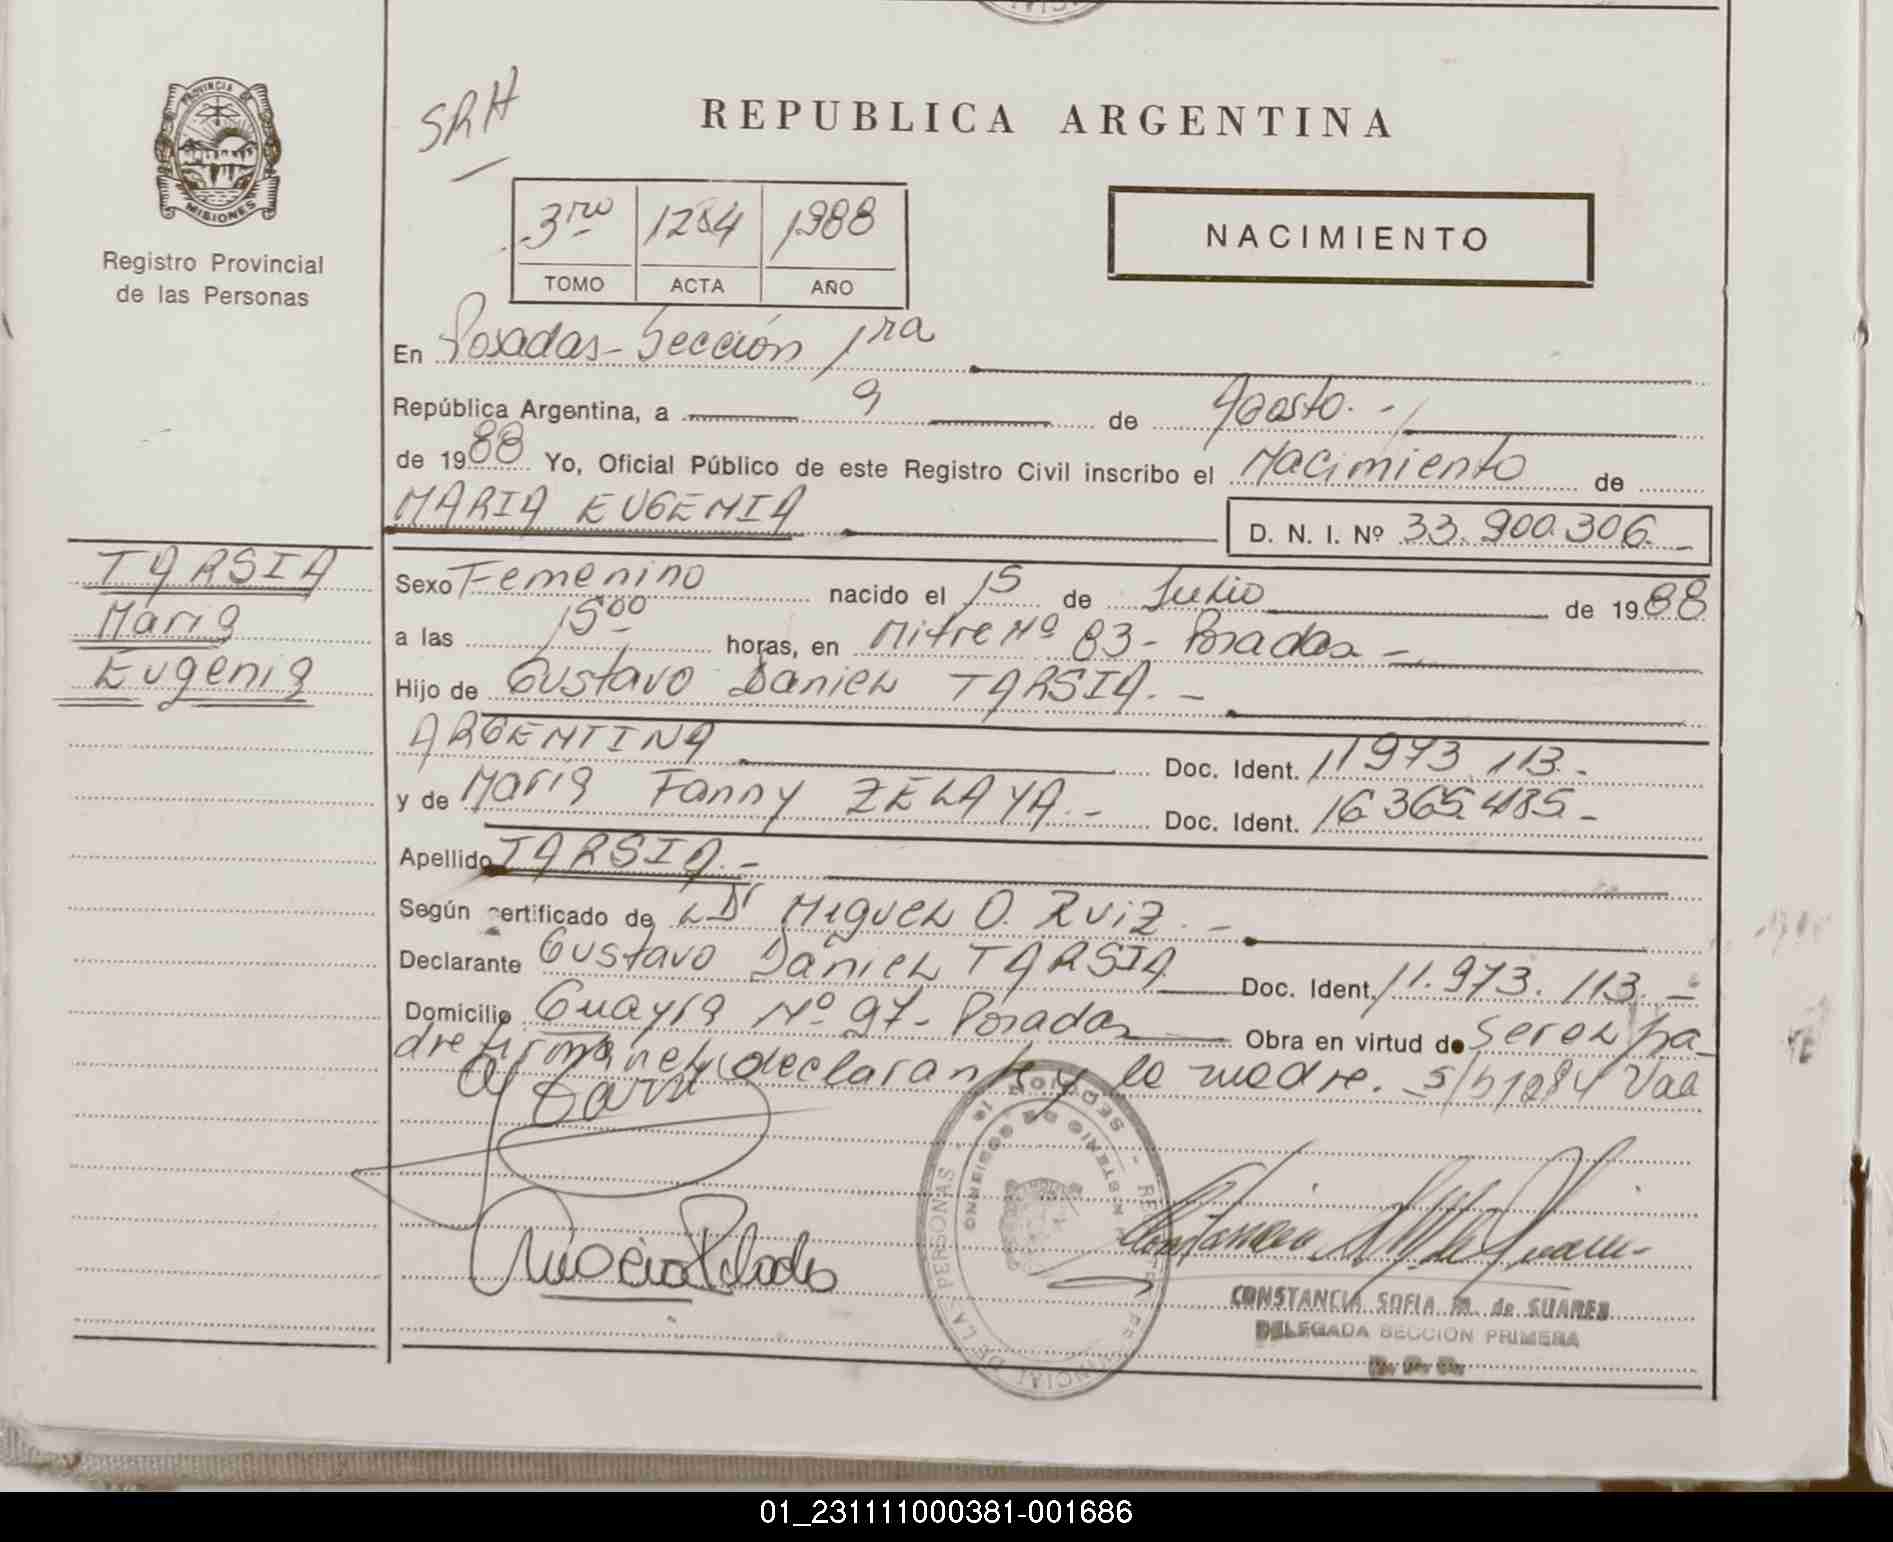 PROVINCIA DE
MISIONES
Registro Provincial
de las Personas
SRH
REPUBLICA ARGENTINA
3ro 1284 1988
TOMO ACTA AÑO
NACIMIENTO
En Posadas - Sección 1ra
República Argentina, a 9 de Agosto.-
de 1988 Yo, Oficial Público de este Registro Civil inscribo el Nacimiento de
MARIA EUGENIA D. N. I. Nº 33.900.306.-
TARSIA
Maria
Eugenia
Sexo Femenino nacido el 15 de Julio de 1988
a las 15 00 horas, en Mitre Nº 83 - Posadas -
Hijo de Gustavo Daniel TARSIA. -
ARGENTINA Doc. Ident. 11973.113.-
y de María Fanny ZELAYA.- Doc. Ident. 16365.485.-
Apellido TARSIA.-
Según certificado de Dr Miguel O. Ruiz.-
Declarante Gustavo Daniel TARSIA Doc. Ident. 11.973.113.-
Domicilio Guayra Nº 97 - Posadas Obra en virtud de ser el pa-
dre firman el declarante y la madre. 1284 Vale
SECCION 1a - REGISTRO PROVINCIAL DE LAS PERSONAS
MINISTERIO DE GOBIERNO
CONSTANCIA SOFIA M. de SUARES
DELEGADA SECCION PRIMERA
01_231111000381-001686